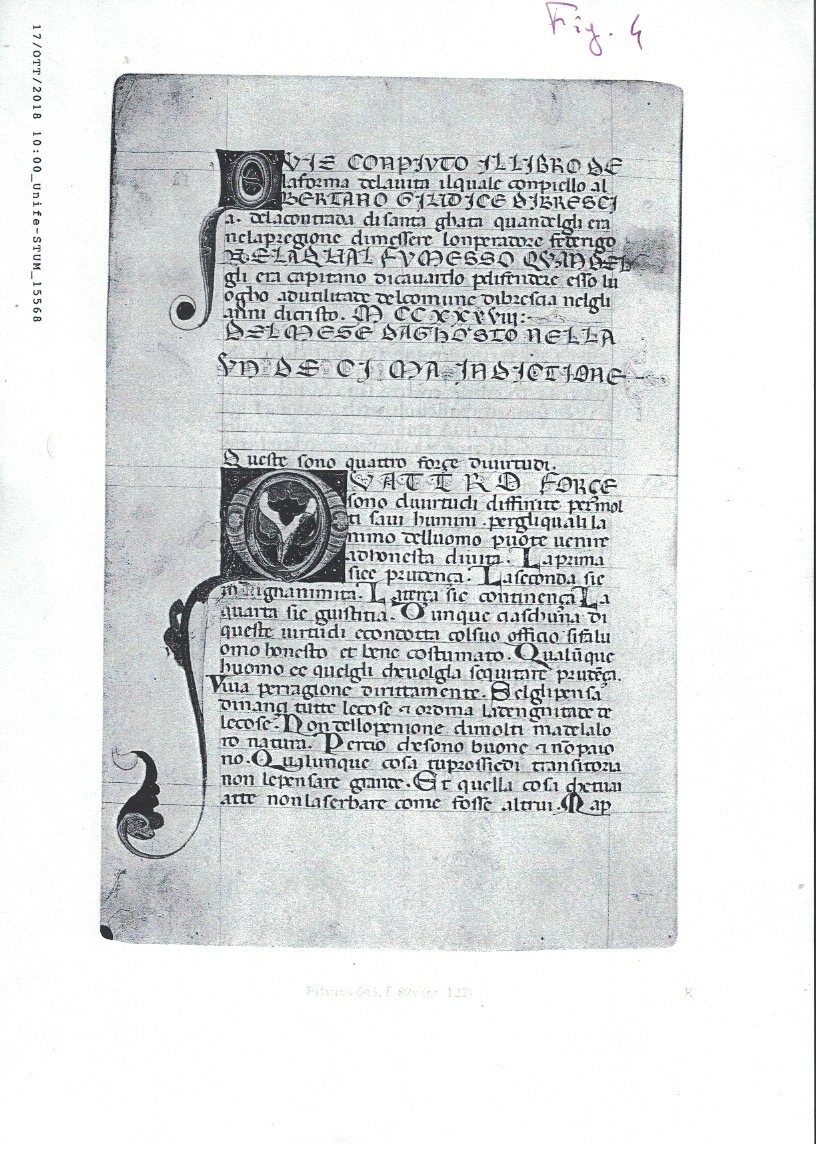 Fig. 4
17/OTT/2018 10:00_Unife-STUM_15568
QVIE CONPIVTO ILLIBRO DE
laforma delauita ilquale conpiello al
BERTANO GIUDICE DIBRESCI
a. delacontrada disanta ghata quandelgli era
nelapregione dimessere lonperadore federigo
NELAQUAL FV MESSO QVANDEL
gli era capitano dicauardo pdifendere esso lu
ogho adutilitade delcomune dibrescia nelgli
anni dicristo. M CC XXXViii:
DELMESE DAGHOSTO NELLA
VN DE CI MA INDICTIONE
Queste sono quattro forçe diuirtudi.
QVATTRO FORCE
sono diuirtudi diffinite permol
ti saui humini. pergliquali la
nimo delluomo puote uenire
adhonesta diuita. Laprima
siee prudença. Laseconda sie
magnanimita. Laterça sie continença La
quarta sie giustitia. Dunque ciaschuna di
queste uirtudi econdotta colsuo officio sifalu
omo honesto et bene costumato. Qualūque
huomo ee quelgli cheuolgla sequitare prudēça.
Viua perragione dirittamente. Selglipensa
dinançi tutte lecose ⁊ ordina ladengnitade de
lecose. Non dellopenione dimolti madelalo
ro natura. Percio chesono buone ⁊ nōpaio
no. Qualunque cosa tuprossiedi transitoria
non lepensare grande. Et quella cosa chetuai
atte nonlaserbare come fosse altrui. Map
Palatino 643, f. 82v (nr. 122)
R